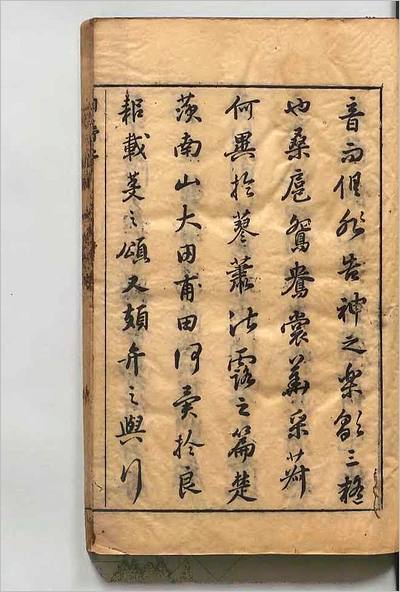 音而但非告神之樂歌三
也桑扈鴛鴦裳華采菽
何異於蓼蕭湛露之篇楚
茨南山大田甫田何異於良
耜載芟之頌又頍弁之與行